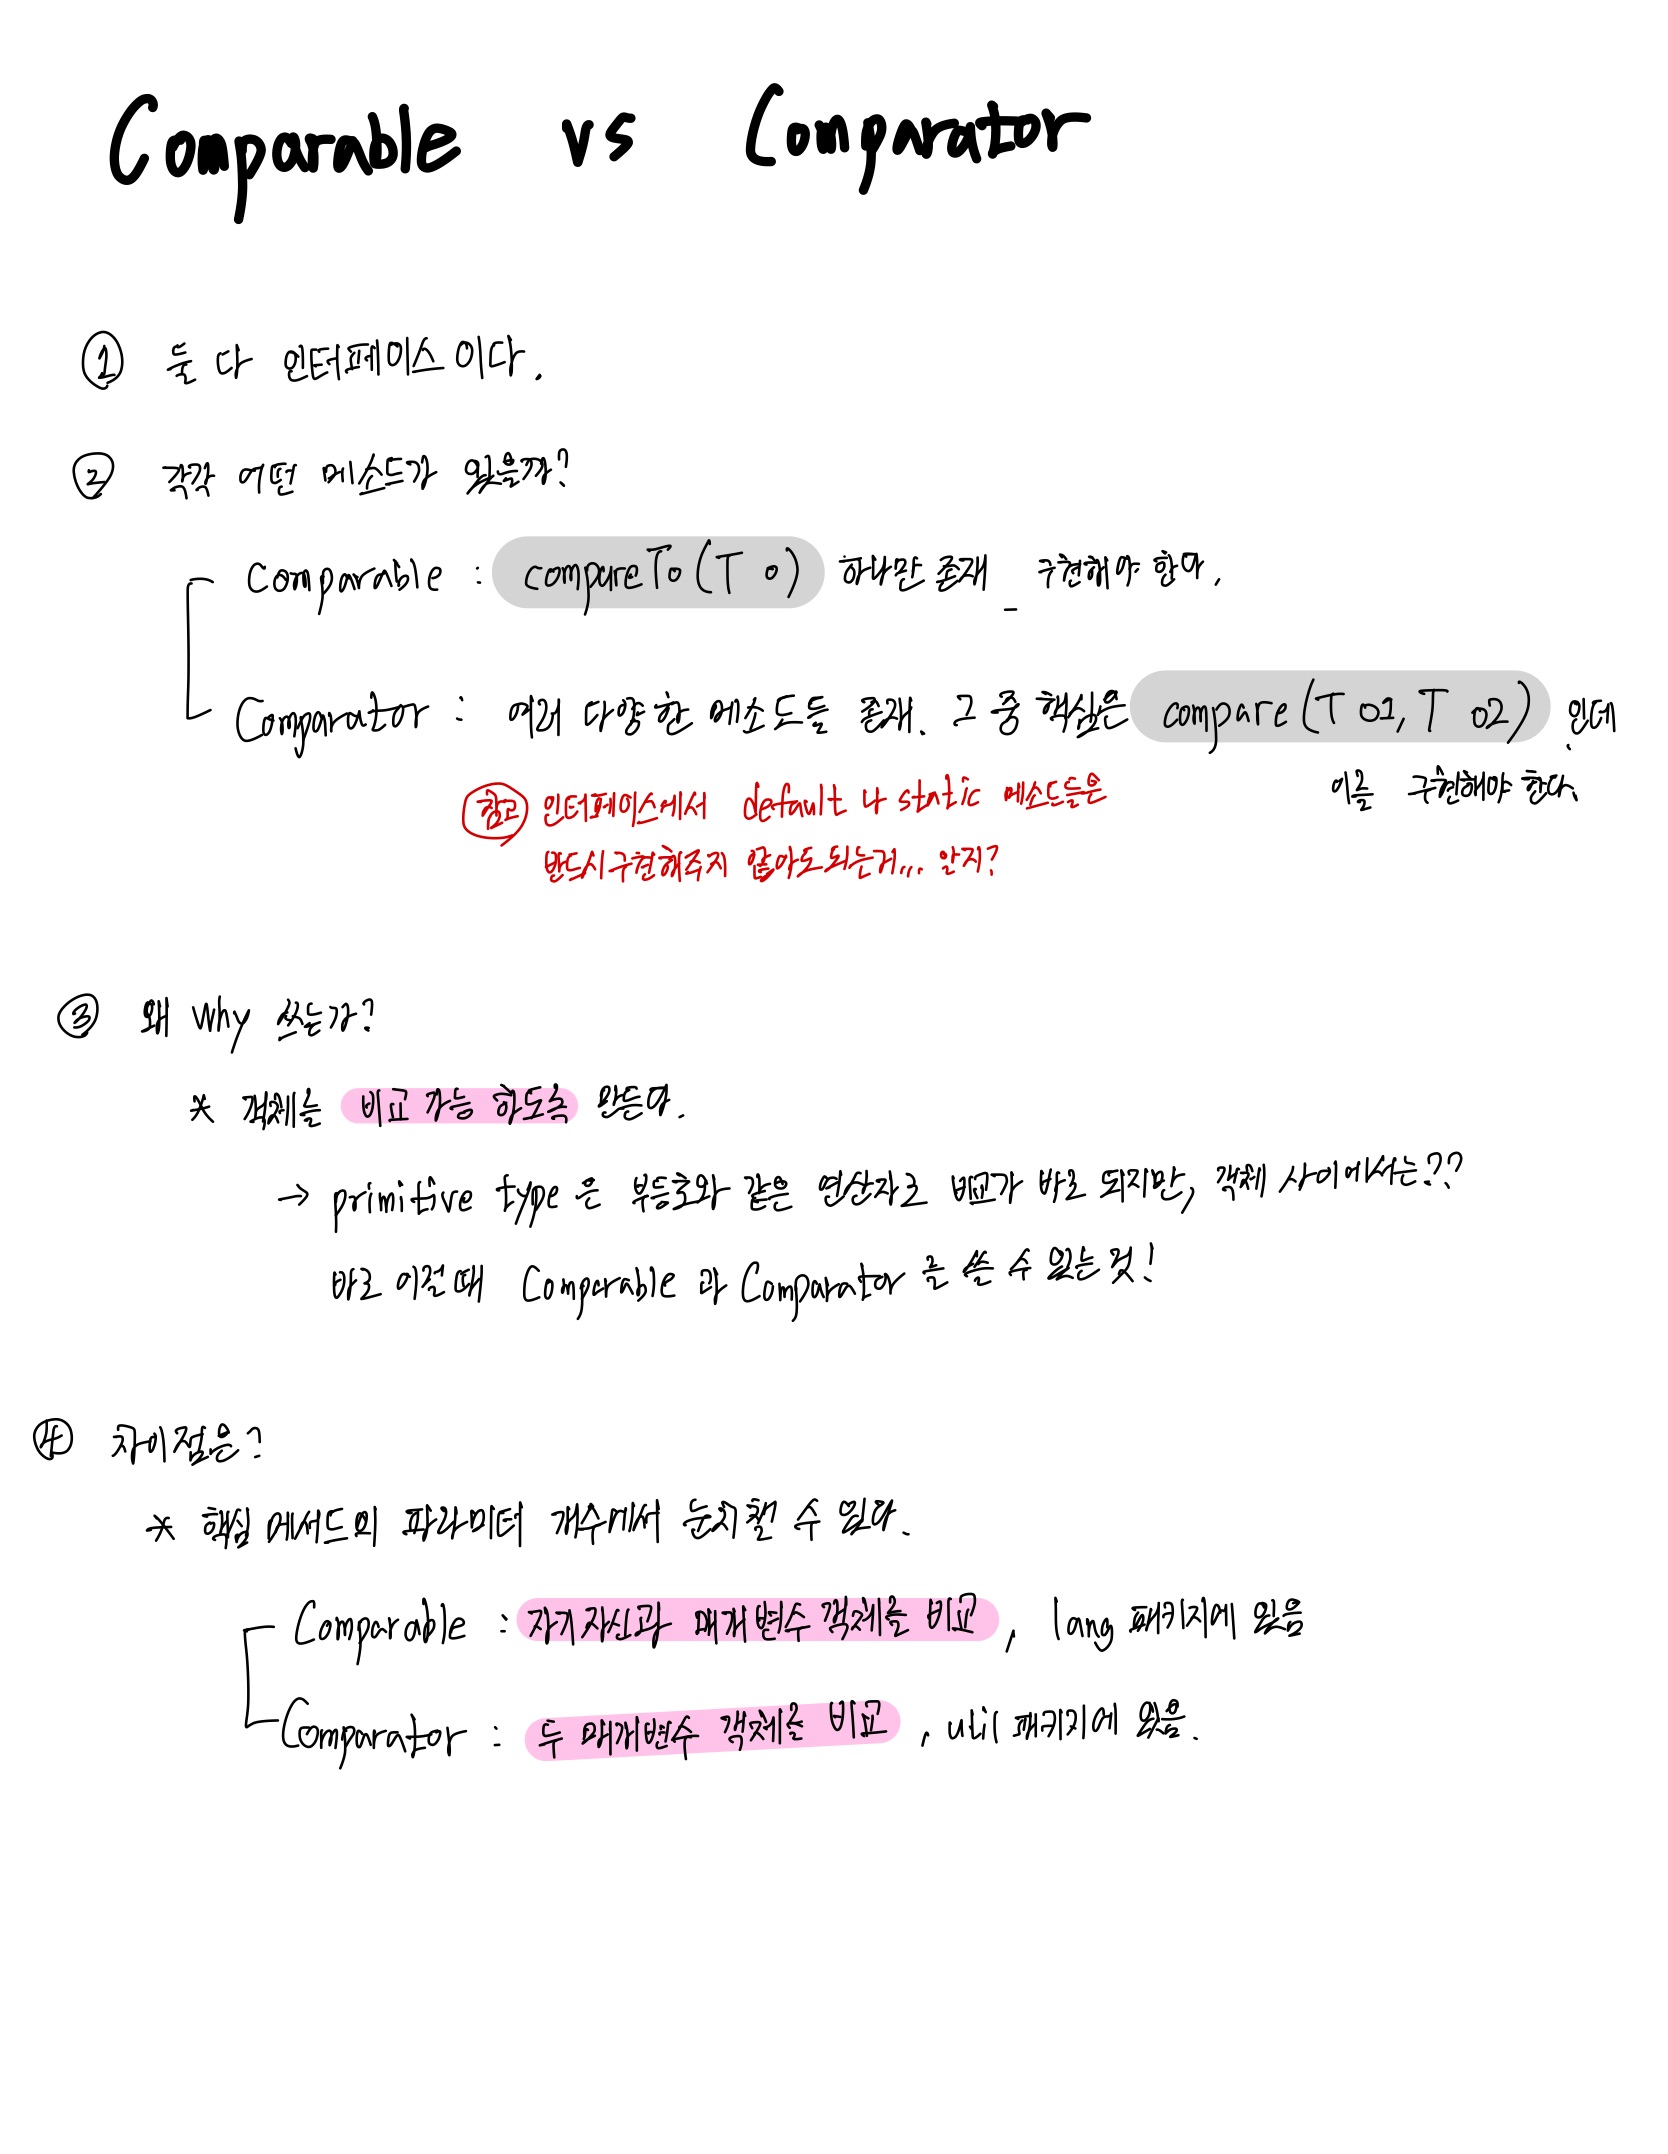 Comparable vs Comparator
① 둘 다 인터페이스이다.
② 각각 어떤 메소드가 있을까?
Comparable : compareTo(T o) 하나만 존재 _ 구현해야 한다.
Comparator : 여러 다양한 메소드들 존재. 그 중 핵심은 compare(T o1, T o2) 인데
이를 구현해야 한다.
참고 인터페이스에서 default 나 static 메소드들은
반드시 구현해주지 않아도되는거... 알지?
③ 왜 why 쓰는가?
* 객체를 비교 가능 하도록 만든다.
→ primitive type 은 부등호와 같은 연산자로 비교가 바로 되지만, 객체 사이에서는??
바로 이럴때 Comparable 과 Comparator 를 쓸 수 있는 것!
④ 차이점은?
* 핵심 메서드의 파라미터 개수에서 눈치챌 수 있다.
Comparable : 자기자신과 매개변수 객체를 비교, lang 패키지에 있음
Comparator : 두 매개변수 객체를 비교, util 패키지에 있음.